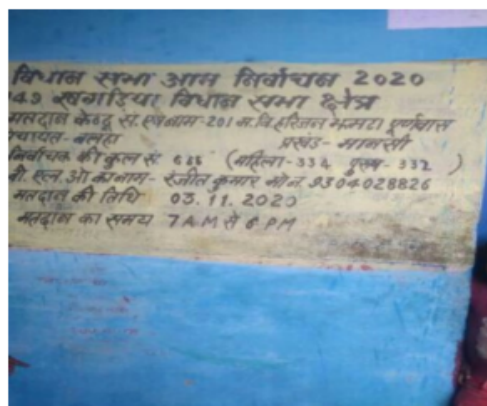 विधान सभा आम निर्वाचन 2020
149 खगड़िया विधान सभा क्षेत्र
मतदान केन्द्र सं. एवं नाम-201 म.वि. हरिजन झमटा पूर्णवास
पंचायत-बलहा प्रखंड-मानसी
निर्वाचक की कुल सं. 666 (महिला-334 पुरुष-332)
बी. एल. ओ का नाम- रंजीत कुमार 9304028826
मतदान की तिथि 03.11.2020
मतदान का समय 7 AM से 6 PM